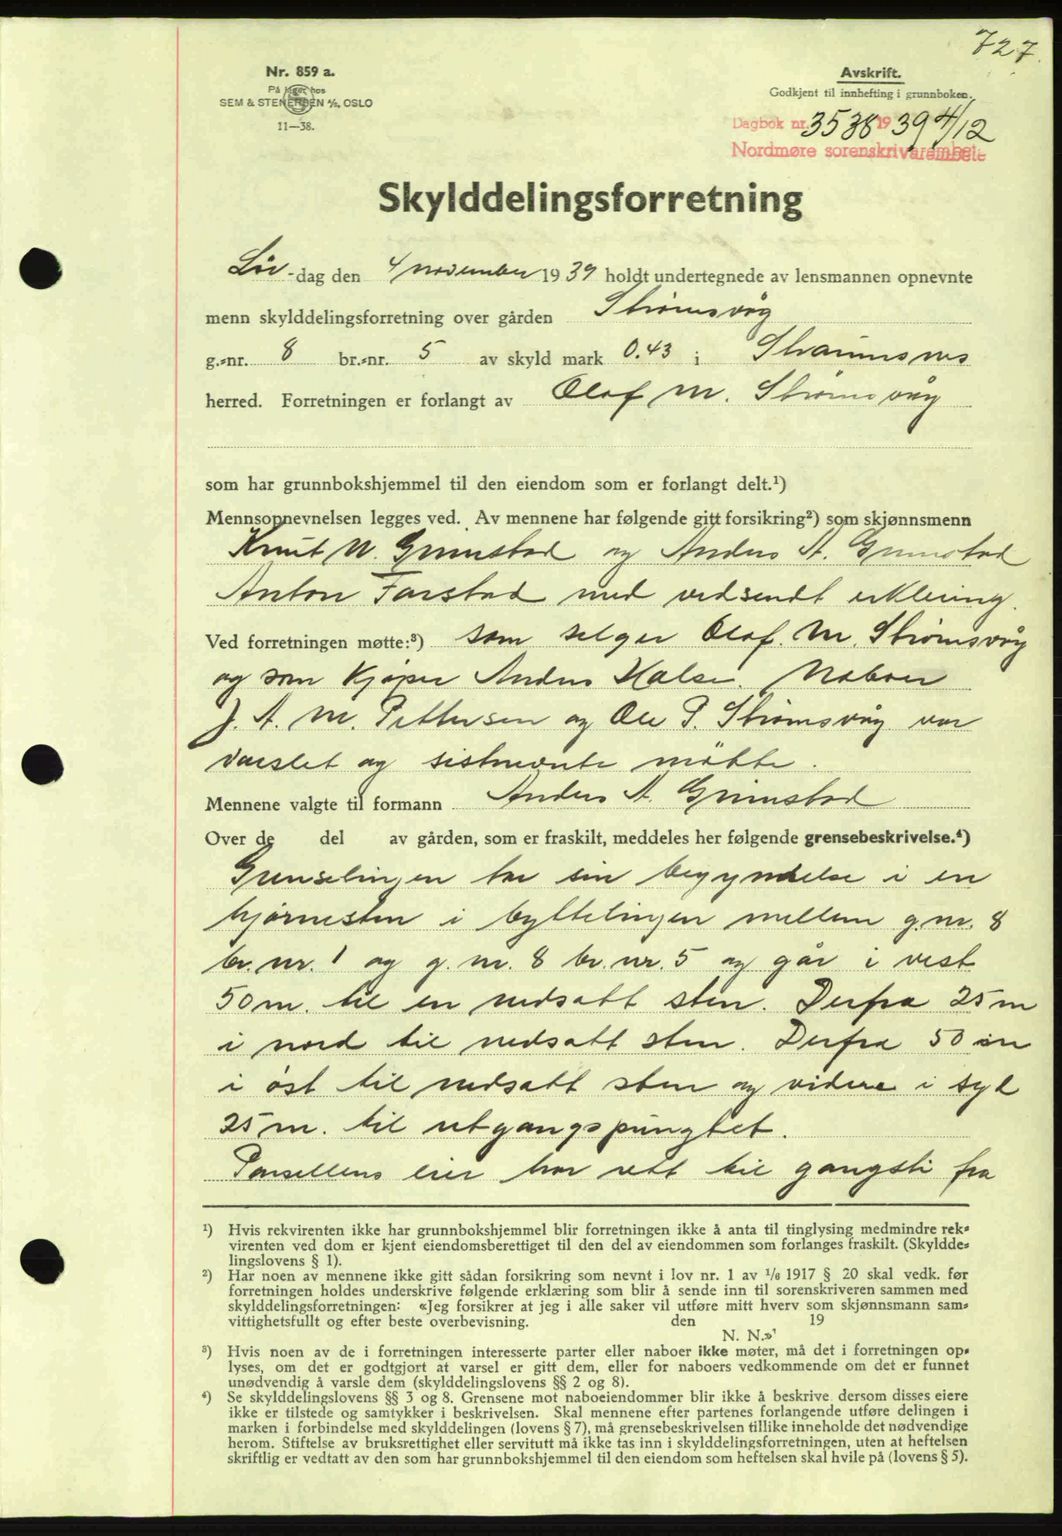 727.
Nr. 859 a.
På lager hos
SEM & STENERSEN A/S, OSLO
11—38.
Avskrift.
Godkjent til innhefting i grunnboken.
Dagbok nr. 3538 1939 4/12
Nordmøre sorenskriverembete
Skylddelingsforretning
Lør-dag den 4 november 1939 holdt undertegnede av lensmannen opnevnte
menn skylddelingsforretning over gården Strømsvåg
g.-nr. 8 br.-nr. 5 av skyld mark 0.43 i Straumsnes
herred. Forretningen er forlangt av Olaf M. Strømsvåg
som har grunnbokshjemmel til den eiendom som er forlangt delt.¹)
Mennsopnevnelsen legges ved. Av mennene har følgende gitt forsikring²) som skjønnsmenn
Knut N. Grimstad og Anders A. Grimstad
Anton Farstad med vedsendt erklering.
Ved forretningen møtte:³) som selger Olaf. M. Strømsvåg
og som kjøper Anders Halse. Naboer
J. A. M. Pettersen og Ole P. Strømsvåg var
varslet og sistnevnte møtte.
Mennene valgte til formann Anders A. Grimstad
Over de del av gården, som er fraskilt, meddeles her følgende grensebeskrivelse.⁴)
Grenselinjen tar sin begyndelse i en
hjørnesten i byttelinjen mellem g.nr. 8
br. nr. 1 og g. nr. 8 br. nr. 5 og går i vest
50 m. til en nedsatt sten. Derfra 25 m
i nord til nedsatt sten. Derfra 50 m
i øst til nedsatt sten og videre i syd
25 m. til utgangspungtet.
Parsellens eier har rett til gangsti fra
¹) Hvis rekvirenten ikke har grunnbokshjemmel blir forretningen ikke å anta til tinglysing medmindre rek-
virenten ved dom er kjent eiendomsberettiget til den del av eiendommen som forlanges fraskilt. (Skyldde-
lingslovens § 1).
²) Har noen av mennene ikke gitt sådan forsikring som nevnt i lov nr. 1 av 1/6 1917 § 20 skal vedk. før
forretningen holdes underskrive følgende erklæring som blir å sende inn til sorenskriveren sammen med
skylddelingsforretningen: «Jeg forsikrer at jeg i alle saker vil utføre mitt hverv som skjønnsmann sam-
vittighetsfullt og efter beste overbevisning. den 19
N. N.»
³) Hvis noen av de i forretningen interesserte parter eller naboer ikke møter, må det i forretningen op-
lyses, om det er godtgjort at varsel er gitt dem, eller for naboers vedkommende om det er funnet
unødvendig å varsle dem (skylddelingslovens §§ 2 og 8).
⁴) Se skylddelingslovens §§ 3 og 8. Grensene mot naboeiendommer blir ikke å beskrive, dersom disses eiere
ikke er tilstede og samtykker i beskrivelsen. Skal mennene efter partenes forlangende utføre delingen i
marken i forbindelse med skylddelingen (lovens § 7), må grensebeskrivelsen tillike inneholde det nødvendige
herom. Stiftelse av bruksrettighet eller servitutt må ikke tas inn i skylddelingsforretningen, uten at heftelsen
skriftlig er vedtatt av den som har grunnbokshjemmel til den eiendom som heftelsen skal hvile på (lovens § 5).